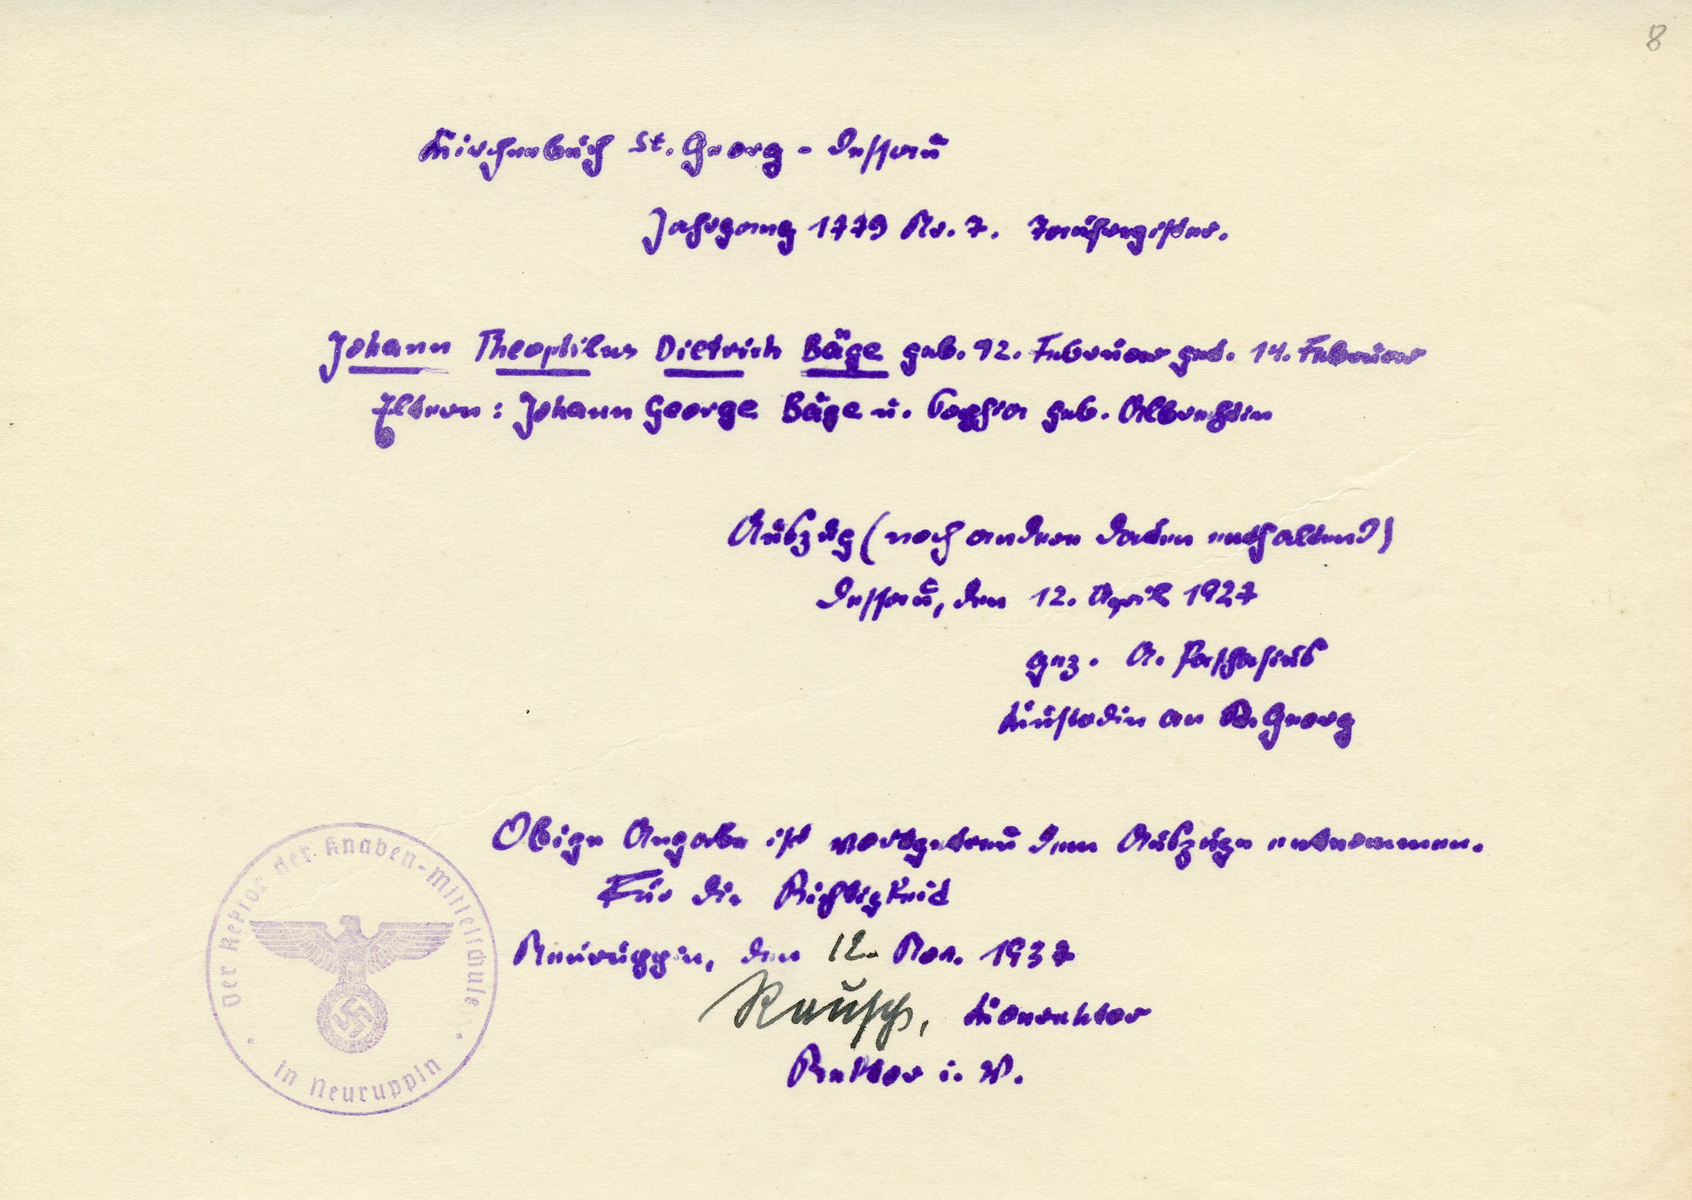 8
Kirchenbuch St. Georg - Dessau
Jahrgang 1779 Nr. 7. Taufregister.
Johann Theophilus Dietrich Bäge geb. 12. Februar get. 14. Februar
Eltern: Johann George Bäge u. Sophia geb. Albrechtin
Auszug (noch andere Daten enthaltend)
Dessau, den 12. April 1927
gez. A. Paschasius
Küstodin an St. Georg
Obige Angabe ist wortgetreu dem Auszuge entnommen.
Für die Richtigkeit
Neuruppin, den 12. Nov. 1937
Rausch, Konrektor
Rektor i. V.
Der Rektor der Knaben-Mittelschule
in Neuruppin